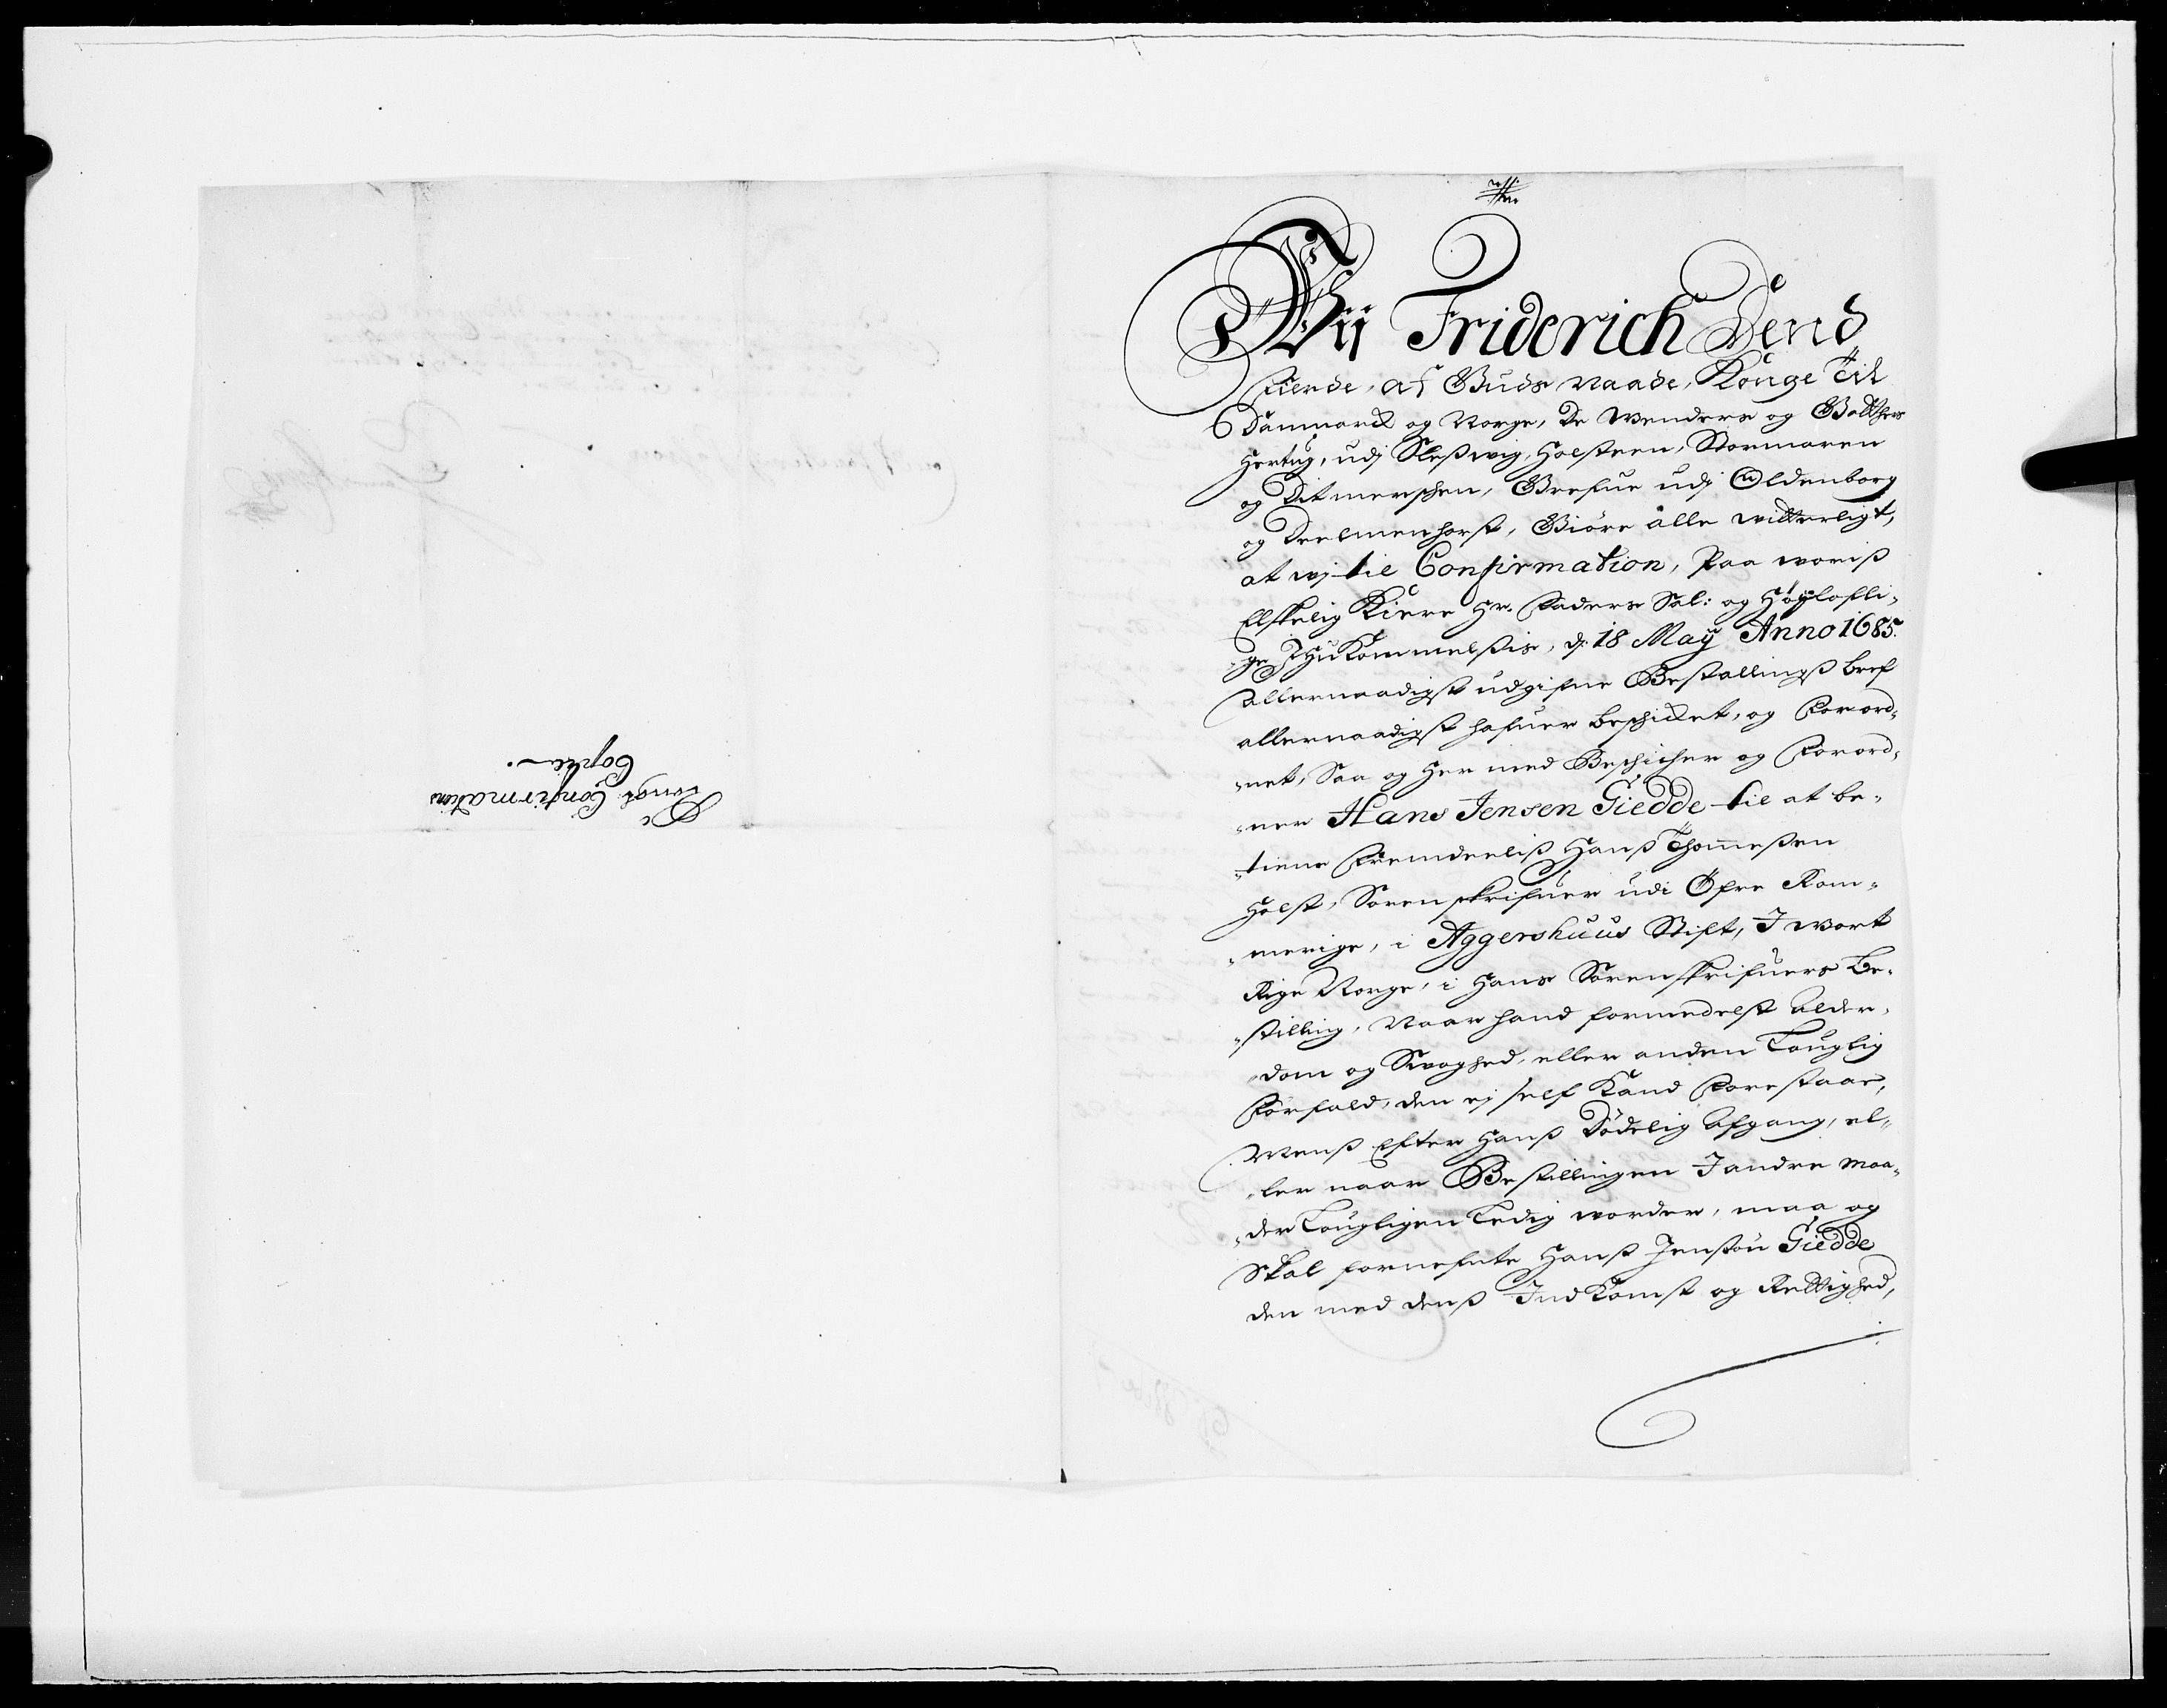 Wii Friderich Dend
Fierde, af Guds Naade, Konge Til
Danmarck og Norge, De Wenders og Gotthers
Hertug, udj Sleswig, Holsteen, Stormaren
og Ditmerschen, Grefue udj Oldenborg
og Deelmenhorst, Giöre alle witterligt,
at wj til Confirmation, paa woris
Elskelig Kiere Hr. Faders Sal: og Höjlofli-
-ge Ihukommelsis, d. 18 Maij Anno 1685.
allernaadigst udgifne Bestallings bref
allernaadigst hafuer beschicket, og Forord-
-net, Saa og her med Beschicher og Forord-
-ner Hans Jensen Giedde til at be-
-tiene Fremdeelis Hans Thommesen
Holst, Sorenskrifuer udi Öfre Rom-
-merige, i Aggershuus Stift, I wort
Rige Norge, i hans Sorenskrifuers be-
-stilling, Naar hand formedelst alder-
-dom og Swaghed, eller anden Lauglig
Forfald, den ej self kand Forestaae,
Mens Efter Hans Dödelig Afgang, el-
-ler naar Bestillingen I andre maa-
-der Laugligen Ledig worder, maa og
Skal fornefnte Hans Jensön Giedde
den med dens Indkomst og Rettighed,
Kongl. Confirmations
Copia.